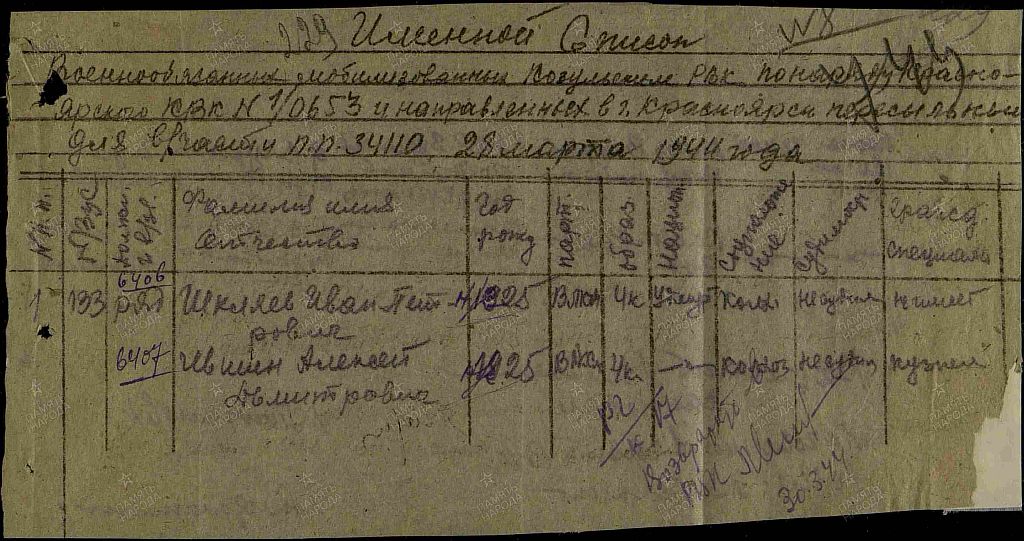 229 Именной Список
Военнообязанных мобилизованных Козульским РВК по наряду Красно-
ярского КВК N 1/0653 и направленных в г. Красноярск пересыльный
для в/части п.п. 34110 28 марта 1944 года
N п.п. N ВУС Должн. Фамилия имя Отчество Год рожд парт. образ национ Соцположение Судимост гражд. специальн
6406
1 133 ряд Шкляев Иван Пет-
рович 1925 ВЛКСМ 4к Удмурт Колх несудим н имеет
6407 Ившин Алексей
Дмитрович 1925 ВЛКСМ 4к. —"— колхоз несудим кузнец
Возвратить
РВК
30.3.44